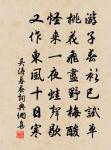 游子春衫已試單
桃花飛盡野梅酸
怪來一夜蛙聲歇
又作東風十日寒
吳濤 詞典網